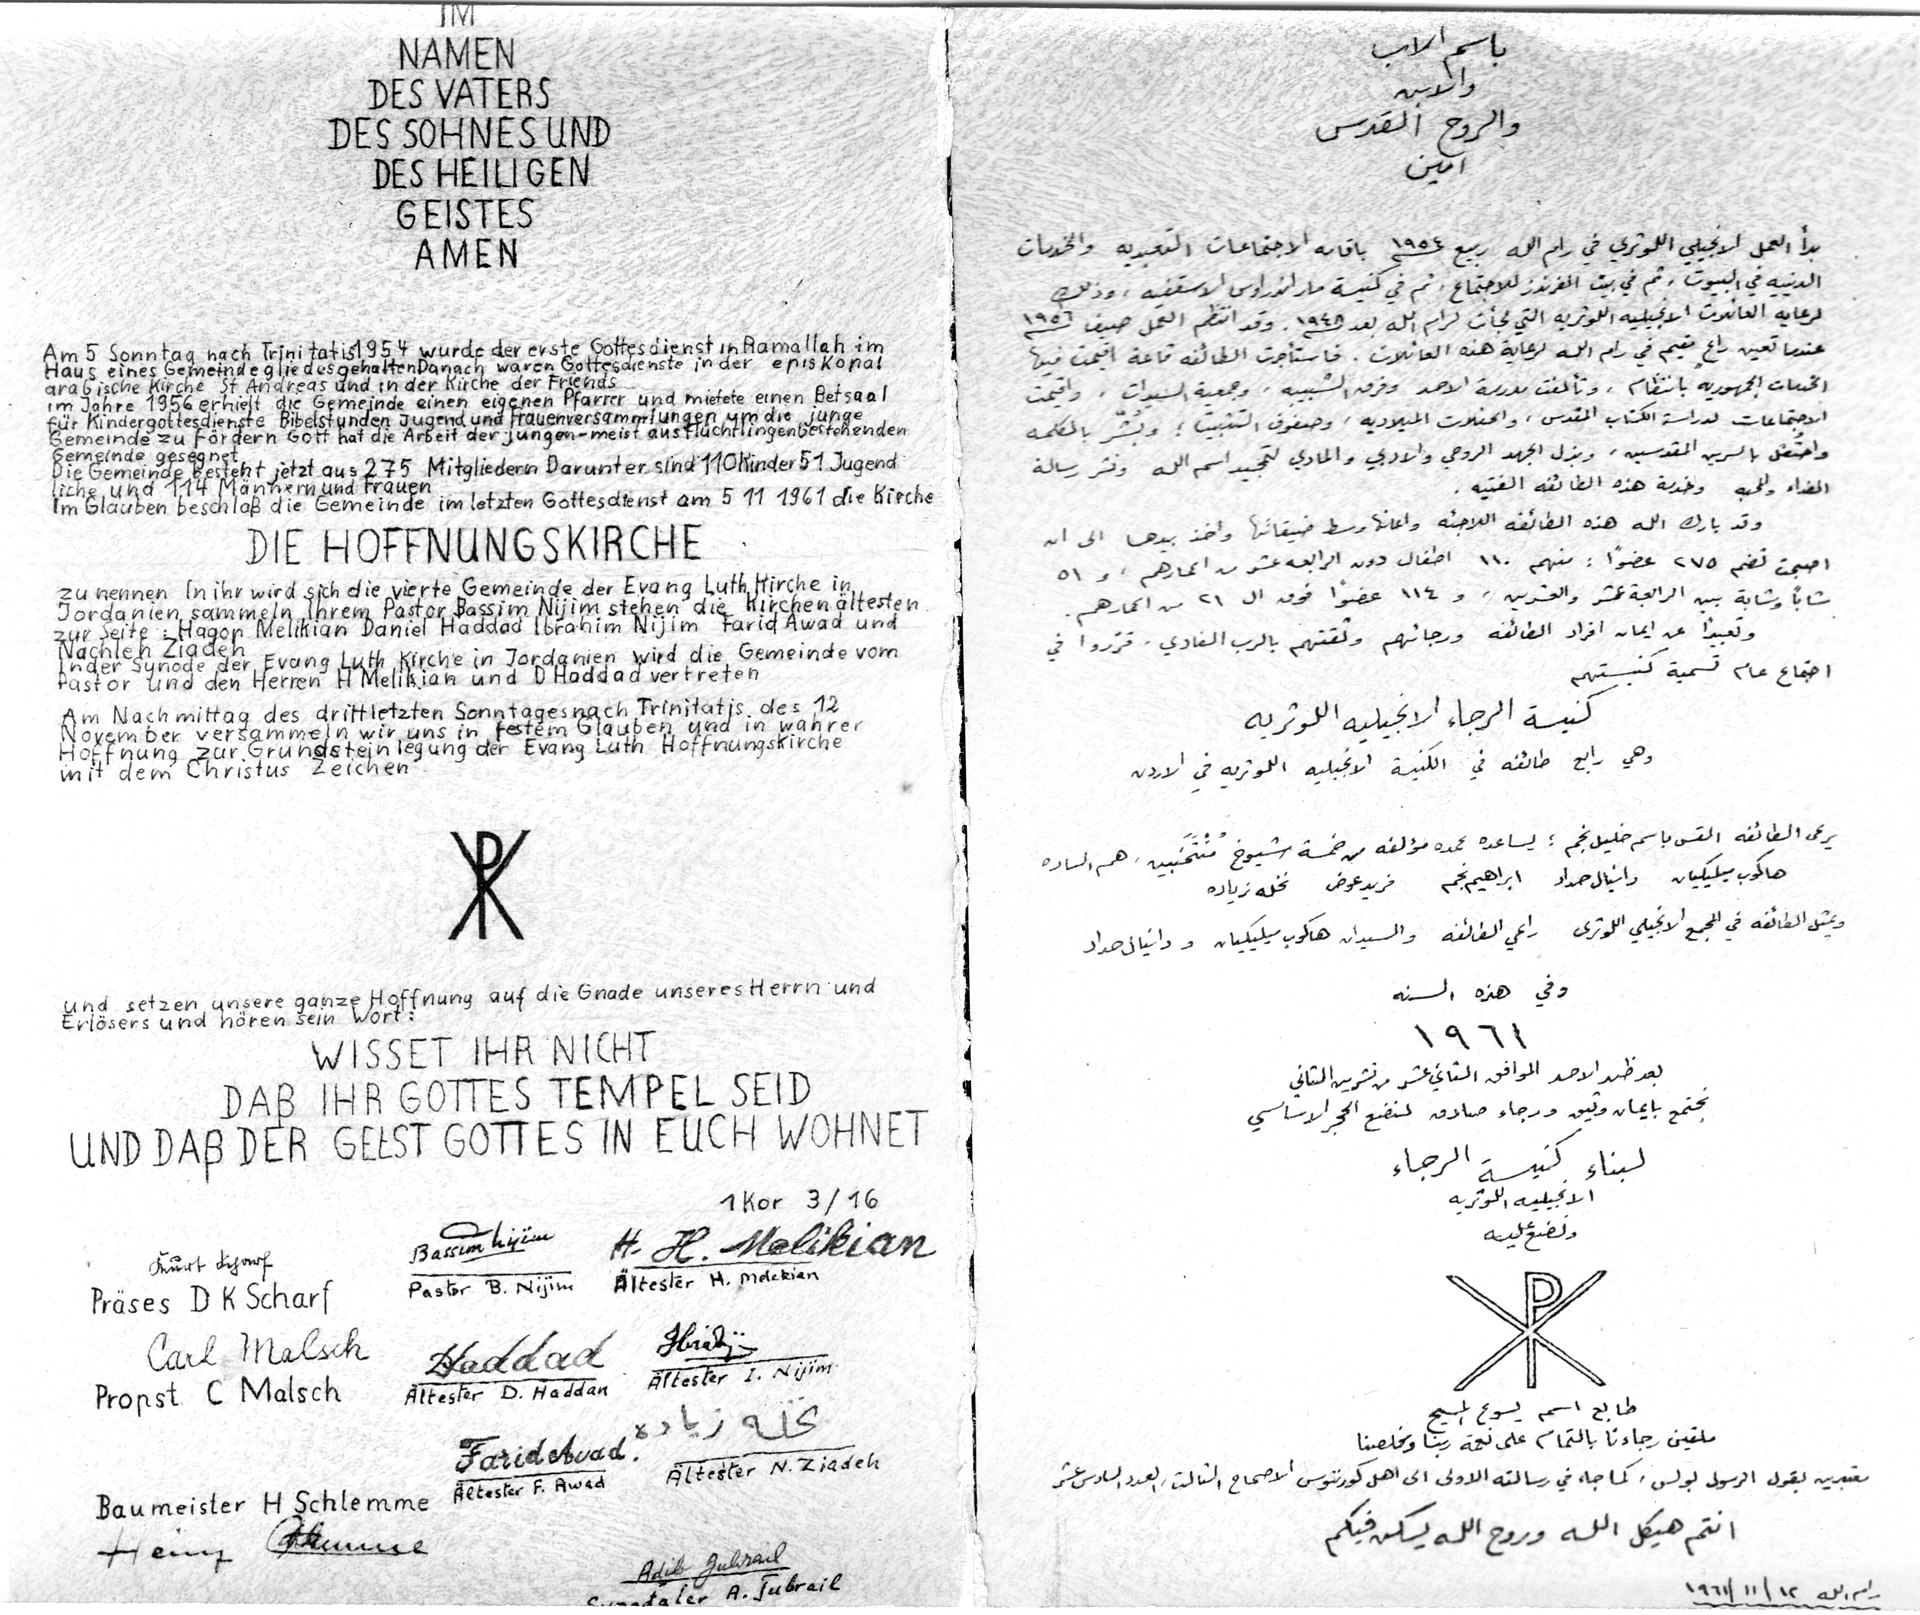 IM
NAMEN
DES VATERS
DES SOHNES UND
DES HEILIGEN
GEISTES
AMEN
Am 5 Sonntag nach Trinitatis 1954 wurde der erste Gottesdienst in Ramallah im
Haus eines Gemeindegliedes gehalten Danach waren Gottesdienste in der episkopal
arabische Kirche St Andreas und in der Kirche der Friends
im Jahre 1956 erhielt die Gemeinde einen eigenen Pfarrer und mietete einen Betsaal
für Kindergottesdienste Bibelstunden Jugend und Frauenversammlungen um die junge
Gemeinde zu fördern Gott hat die Arbeit der jungen-meist aus Flüchtlingen bestehenden
Gemeinde gesegnet
Die Gemeinde besteht jetzt aus 275 Mitgliedern Darunter sind 110 Kinder 51 Jugend
liche und 114 Männern und Frauen
Im Glauben beschlaß die Gemeinde im letzten Gottesdienst am 5 11 1961 die Kirche
DIE HOFFNUNGSKIRCHE
zu nennen In ihr wird sich die vierte Gemeinde der Evang Luth Kirche in
Jordanien sammeln Ihrem Pastor Bassim Nijim stehen die Kirchenältesten
zur Seite: Hagop Melikian Daniel Haddad Ibrahim Nijim Farid Awad und
Nachleh Ziadeh
In der Synode der Evang Luth Kirche in Jordanien wird die Gemeinde vom
Pastor und den Herren H Melikian und D Haddad vertreten
Am Nachmittag des drittletzten Sonntages nach Trinitatis des 12
November versammeln wir uns in festem Glauben und in wahrer
Hoffnung zur Grundsteinlegung der Evang Luth Hoffnungskirche
mit dem Christus Zeichen
und setzen unsere ganze Hoffnung auf die Gnade unseres Herrn und
Erlösers und hören sein Wort:
WISSET IHR NICHT
DAß IHR GOTTES TEMPEL SEID
UND DAß DER GEIST GOTTES IN EUCH WOHNET
1 Kor 3/16
Kurt Scharf
Präses D K Scharf
Bassim Nijim
Pastor B. Nijim
H. H. Melikian
Ältester H. Melekian
Carl Malsch
Propst C Malsch
Haddad
Ältester D. Haddan
Ältester I. Nijim
Farid Awad.
Ältester F. Awad
نخله زياده
Ältester N. Ziadeh
Baumeister H Schlemme
Heinz Schlemme
Adib Jubrail
Synodaler A. Jubrail
باسم الاب
والابن
والروح القدس
امين
بدأ العمل الانجيلي اللوثري في رام الله ربيع ١٩٥٤ باقامة الاجتماعات التعبديه والخدمات
الدينيه في البيوت، ثم في بيت الفرندز للاجتماع، ثم في كنيسة مار اندراوس الاسقفيه، وذلك
لرعاية العائلات الانجيليه اللوثريه التي لجأت لرام الله بعد ١٩٤٨. وقد انتظم العمل صيف ١٩٥٦
عندما تعين راعٍ مقيم في رام الله لرعاية هذه العائلات. فاستأجرت الطائفه قاعة اقيمت فيها
الخدمات الجمهوريه بانتظام، وتألفت مدرسة الاحد وفرق الشبيبه، وجمعية السيدات، واقيمت
الاجتماعات لدراسة الكتاب المقدس، والحفلات الميلاديه، وصفوف التثبيت؛ وبُشّر بالكلمه
واحتُفل بالسرين المقدسين، وبذل الجهد الروحي والادبي والمادي لتمجيد اسم الله ونشر رسالة
الفداء والمحبه وخدمة هذه الطائفه الفتيه.
وقد بارك الله هذه الطائفه اللاجئه واعانها وسط ضيقاتها واخذ بيدها الى ان
اصبحت تضم ٢٧٥ عضوًا: منهم ١١٠ اطفال دون الرابعه عشر من اعمارهم، و ٥١
شابًا وشابة بين الرابعة عشر والعشرين، و ١١٤ عضوًا فوق ال ٢١ من اعمارهم.
وتعبيرًا عن ايمان افراد الطائفه ورجائهم وثقتهم بالرب الفادي، قرروا في
اجتماع عام تسمية كنيستهم
كنيسة الرجاء الانجيليه اللوثريه
وهي رابع طائفه في الكنيسة الانجيليه اللوثريه في الاردن
يرعى الطائفه القس باسم خليل نجم؛ يساعده عمده مؤلفه من خمسة شيوخ مُنْتَخَبين، هم الساده
هاكوب ميليكيان دانيال حداد ابراهيم نجم فريد عوض نخله زياده
ويمثل الطائفه في المجمع الانجيلي اللوثري راعي الطائفه والسيدان هاكوب ميليكيان و دانيال حداد
وفي هذه السنه
١٩٦١
بعد ظهر الاحد الموافق الثاني عشر من تشرين الثاني
نجتمع بايمان وثيق ورجاء صادق لنضع الحجر الاساسي
لبناء كنيسة الرجاء
الانجيليه اللوثريه
ونضع عليه
طابع اسم يسوع المسيح
ملقين رجاءنا بالتمام على نعمة ربنا ومخلصنا
معتبرين بقول الرسول بولس، كما جاء في رسالته الاولى الى اهل كورنثوس الاصحاح الثالث، العدد السادس عشر
انتم هيكل الله وروح الله يسكن فيكم
رام الله ١٢/١١/١٩٦١